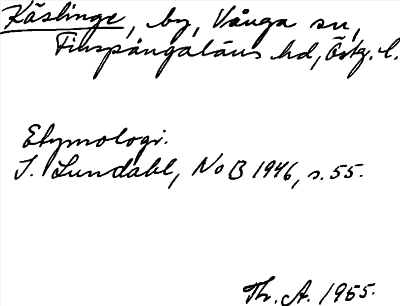 Käslinge, by, Vånga sn,
Finspångaläns hd, Östg. l.
Etymologi.
I. Lundahl, NoB 1946, s. 55.
Th. A. 1955.